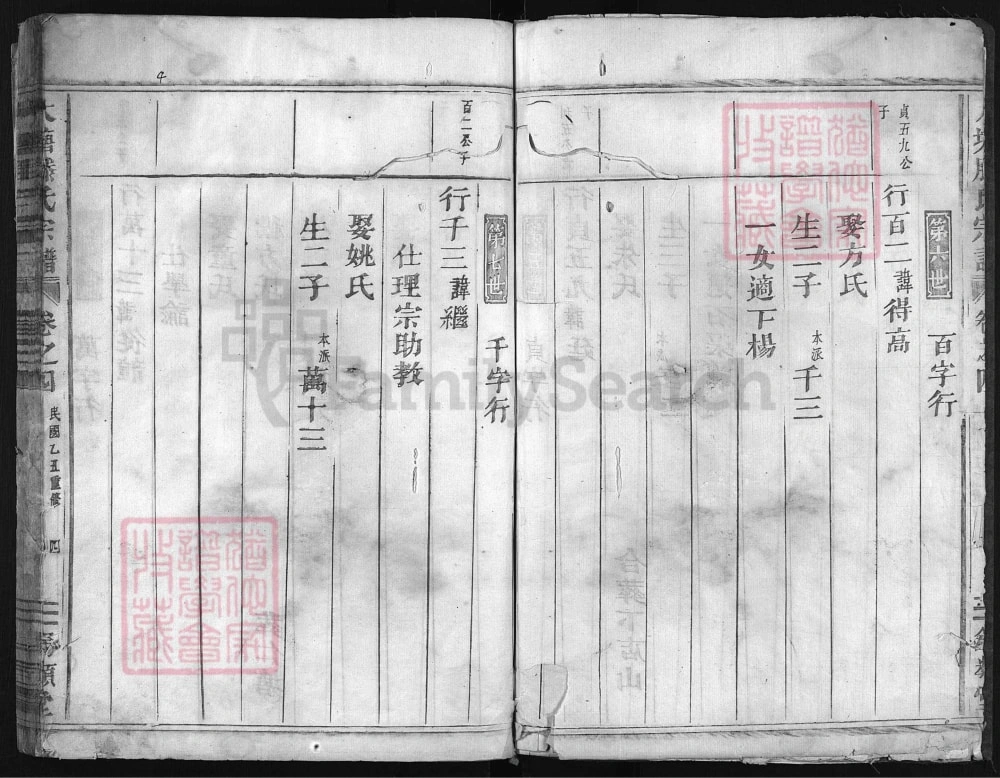 第六世　百字行
貞五九公
子
行百二諱得高
娶方氏
生二子　本派千三
一女適下楊
第七世　千字行
百二公子
行千三諱繼
仕理宗助教
娶姚氏
生二子　本派萬十三
氏宗譜　卷之四　民國乙丑重修　四
FamilySearch
猶他家譜學會收藏
猶他家譜學會收藏